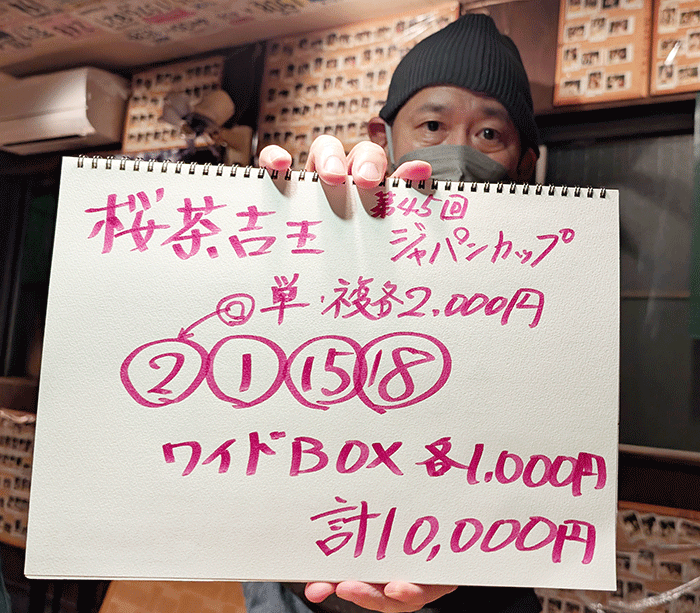 桜茶吉王
第45回
ジャパンカップ
◎単・複各2,000円
② ① ⑮ ⑱
ワイドBOX各1,000円
計10,000円